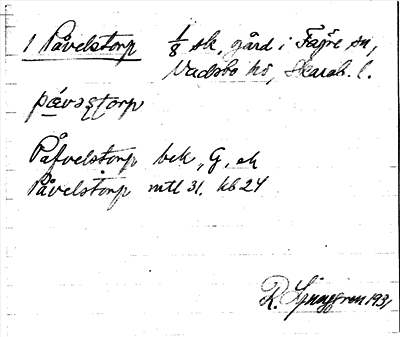 1 Påvelstorp 1/8 sk, gård i Fägre sn,
Vadsbo hd, Skarab. l.
påvəstorp
Påfvelstorp bck, G, ek
Påvelstorp mtl 31. kb 24
R. Ljunggren 1931